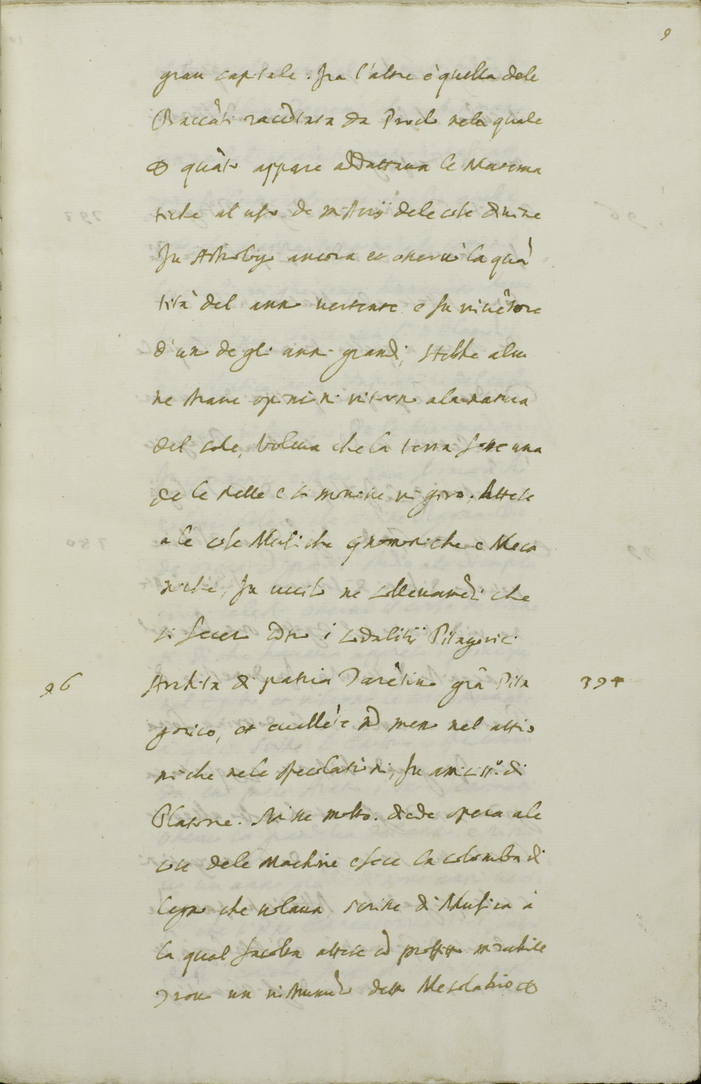 9
gran capitale. fra l'altre è quella dele
Baccāti racc͞tata da Proclo nela quale
quāto appare addattaua le Matema
tiche al uso de misterij dele cose diuine
fu Astrologo ancora et osseruò la quā
tità del anno uertente e fu inuētore
d'un degli anni grandi, Hebbe alcu
ne strane opinioni intorno ala natura
del sole, Voleua che la terra fosse una
de le stelle e si mouesse in giro. Attese
a le cose Musiche gnomoniche e Meca
niche, fu ucciso ne solleuamēti che
si fecer cōtro i sodalitij Pitagorici
96 Archita di patria Tarētino grā Pita 394
gorico, et eccellēte nō meno nel attio
ni che nele specolationi, fu amiciss.o di
Platone. scrisse molto. diede opera ale
cose dele Machine e fece la colomba di
legno che uolaua scrisse di Musica a
la qual facoltà attese cō profitto mirabile
Trouo un istrumēto detto Mesolabio